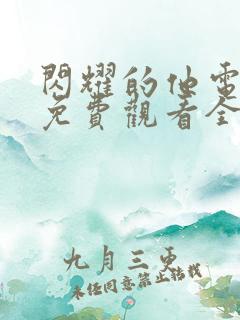 閃耀的他電
免費觀看全
九月三更
未經同意禁止轉載